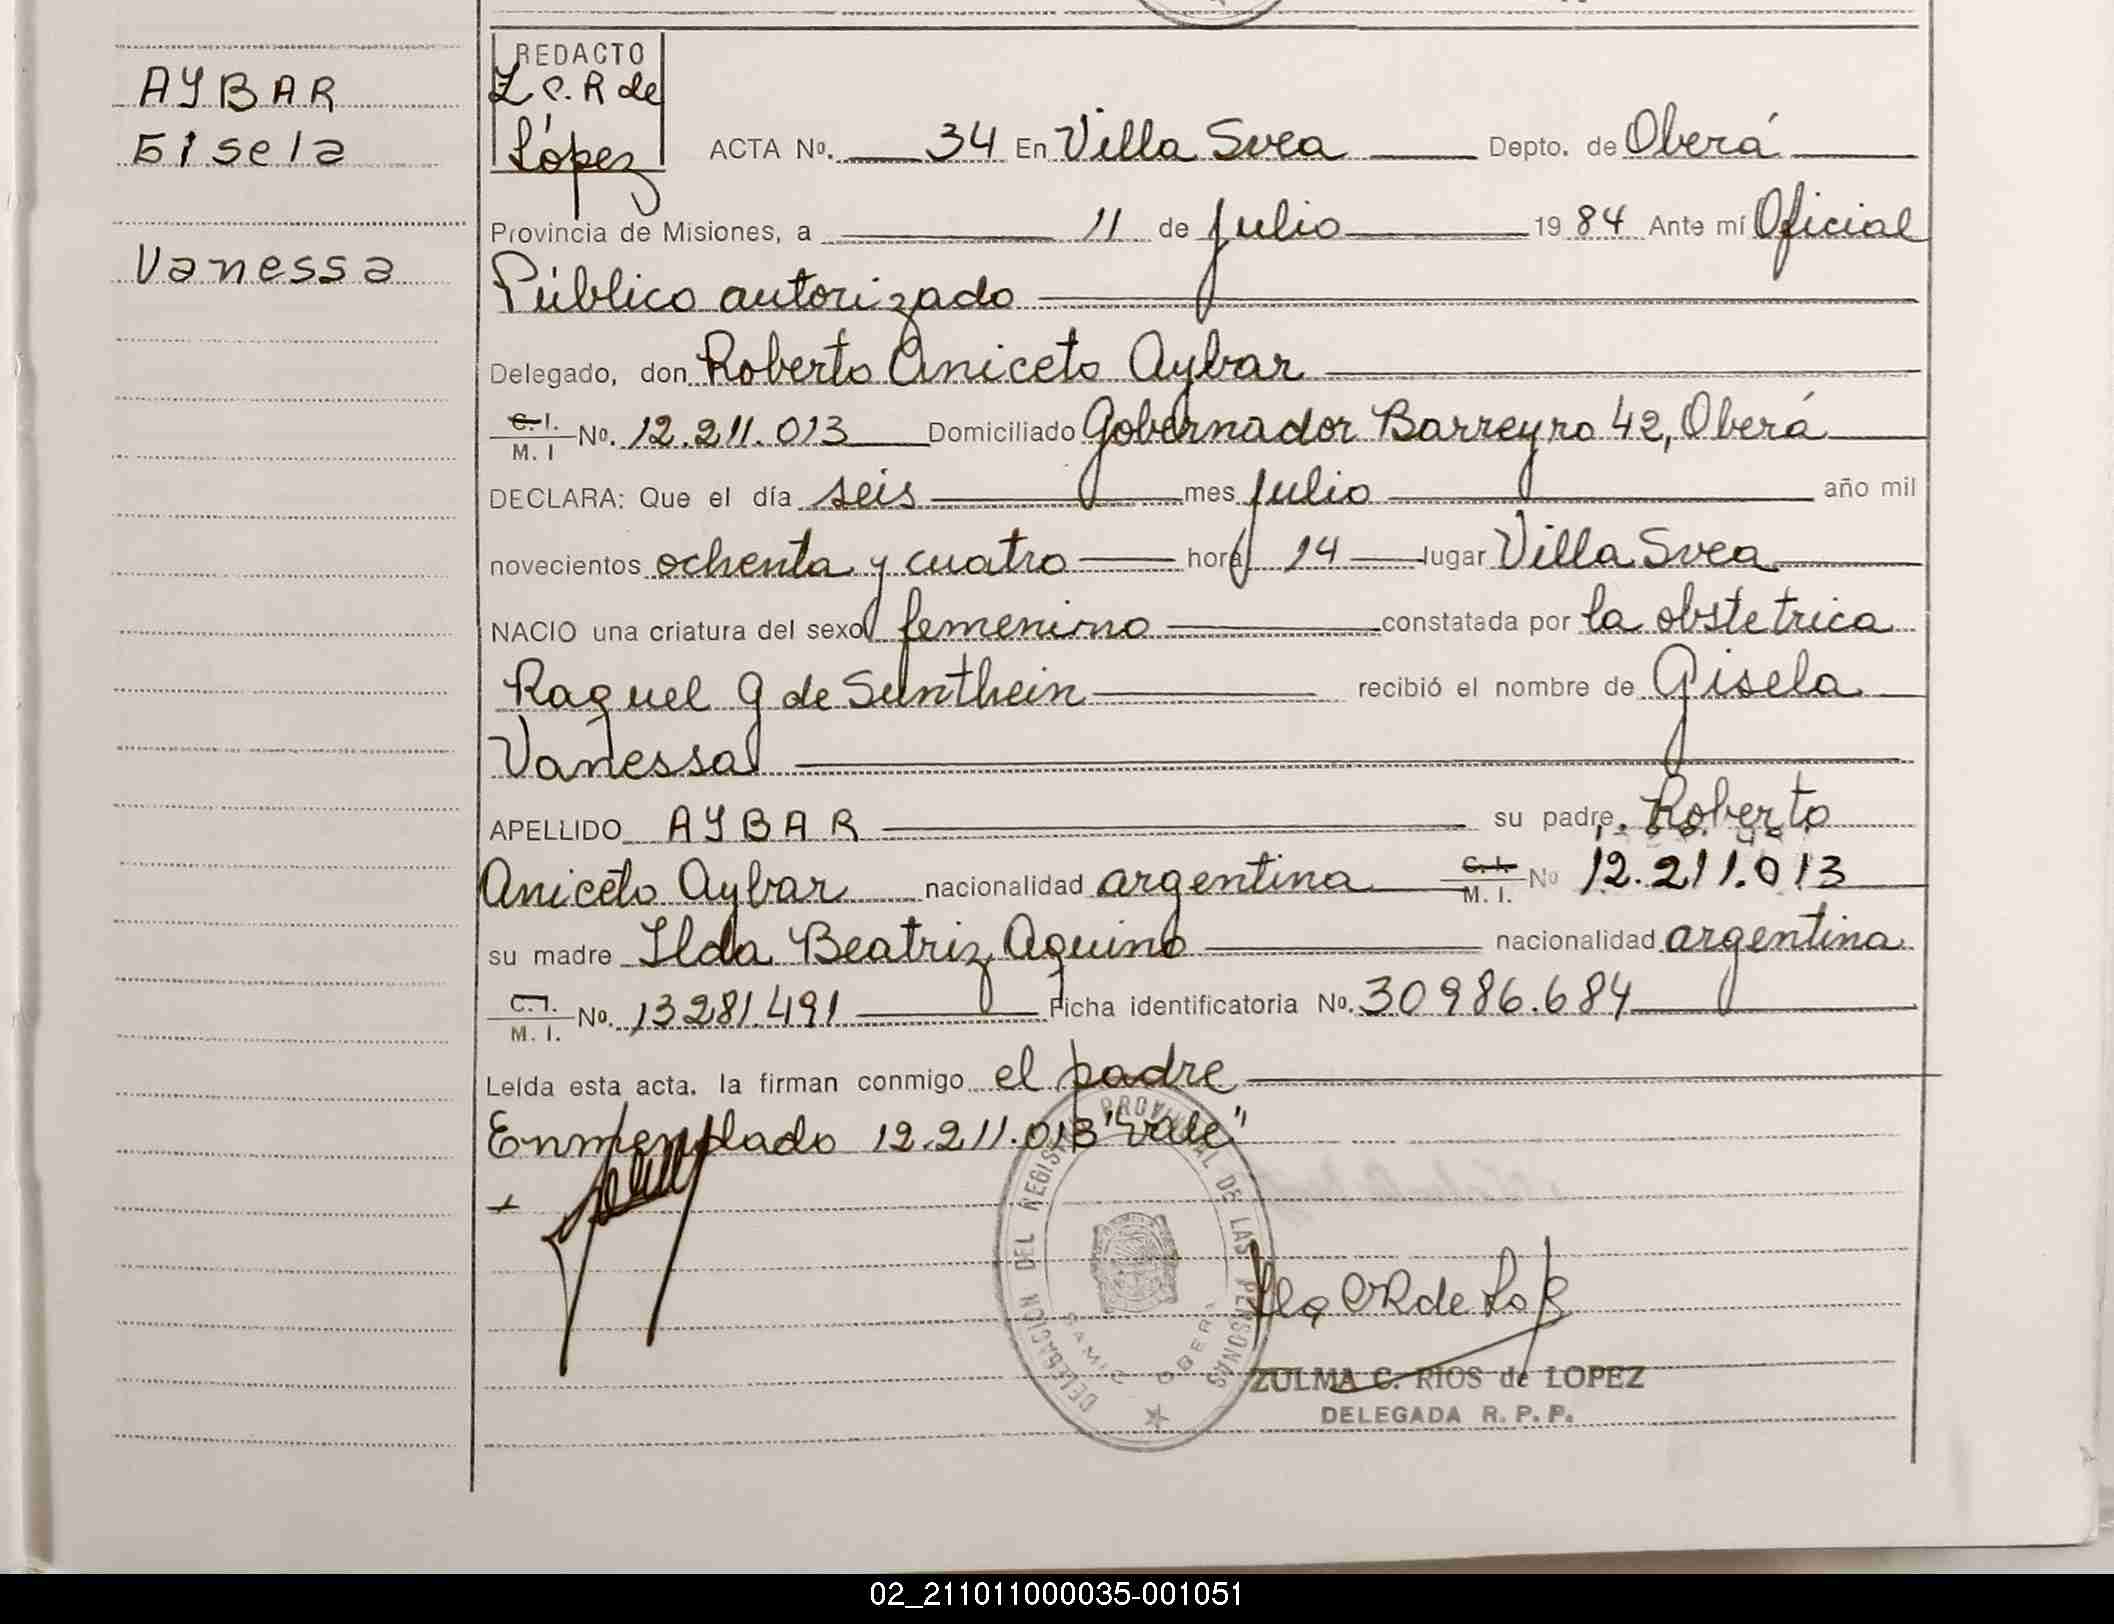 AYBAR
Gisela
Vanessa
REDACTO
Z C. R de
López
ACTA No. 34 En Villa Svea Depto. de Oberá
Provincia de Misiones, a 11 de julio 1984 Ante mí Oficial
Público autorizado
Delegado, don Roberto Aniceto Aybar
C. I. M. I No. 12.211.013 Domiciliado Gobernador Barreyro 42, Oberá
DECLARA: Que el día seis mes julio año mil
novecientos ochenta y cuatro hora 14 lugar Villa Svea
NACIO una criatura del sexo femenino constatada por la obstetrica
Raquel G de Sunthein recibió el nombre de Gisela
Vanessa
APELLIDO AYBAR su padre Roberto
Aniceto Aybar nacionalidad argentina C. I. M. I. No 12.211.013
su madre Ilda Beatriz Aquino nacionalidad argentina
C. I. M. I. No. 13281.491 Ficha identificatoria No. 30986.684
Leída esta acta. la firman conmigo el padre
Enmendado 12.211.013 "vale"
DELEGACION DEL REGISTRO PROVINCIAL DE LAS PERSONAS
SAMIC OBERA
ZULMA C. RIOS de LOPEZ
DELEGADA R. P. P.
02_211011000035-001051